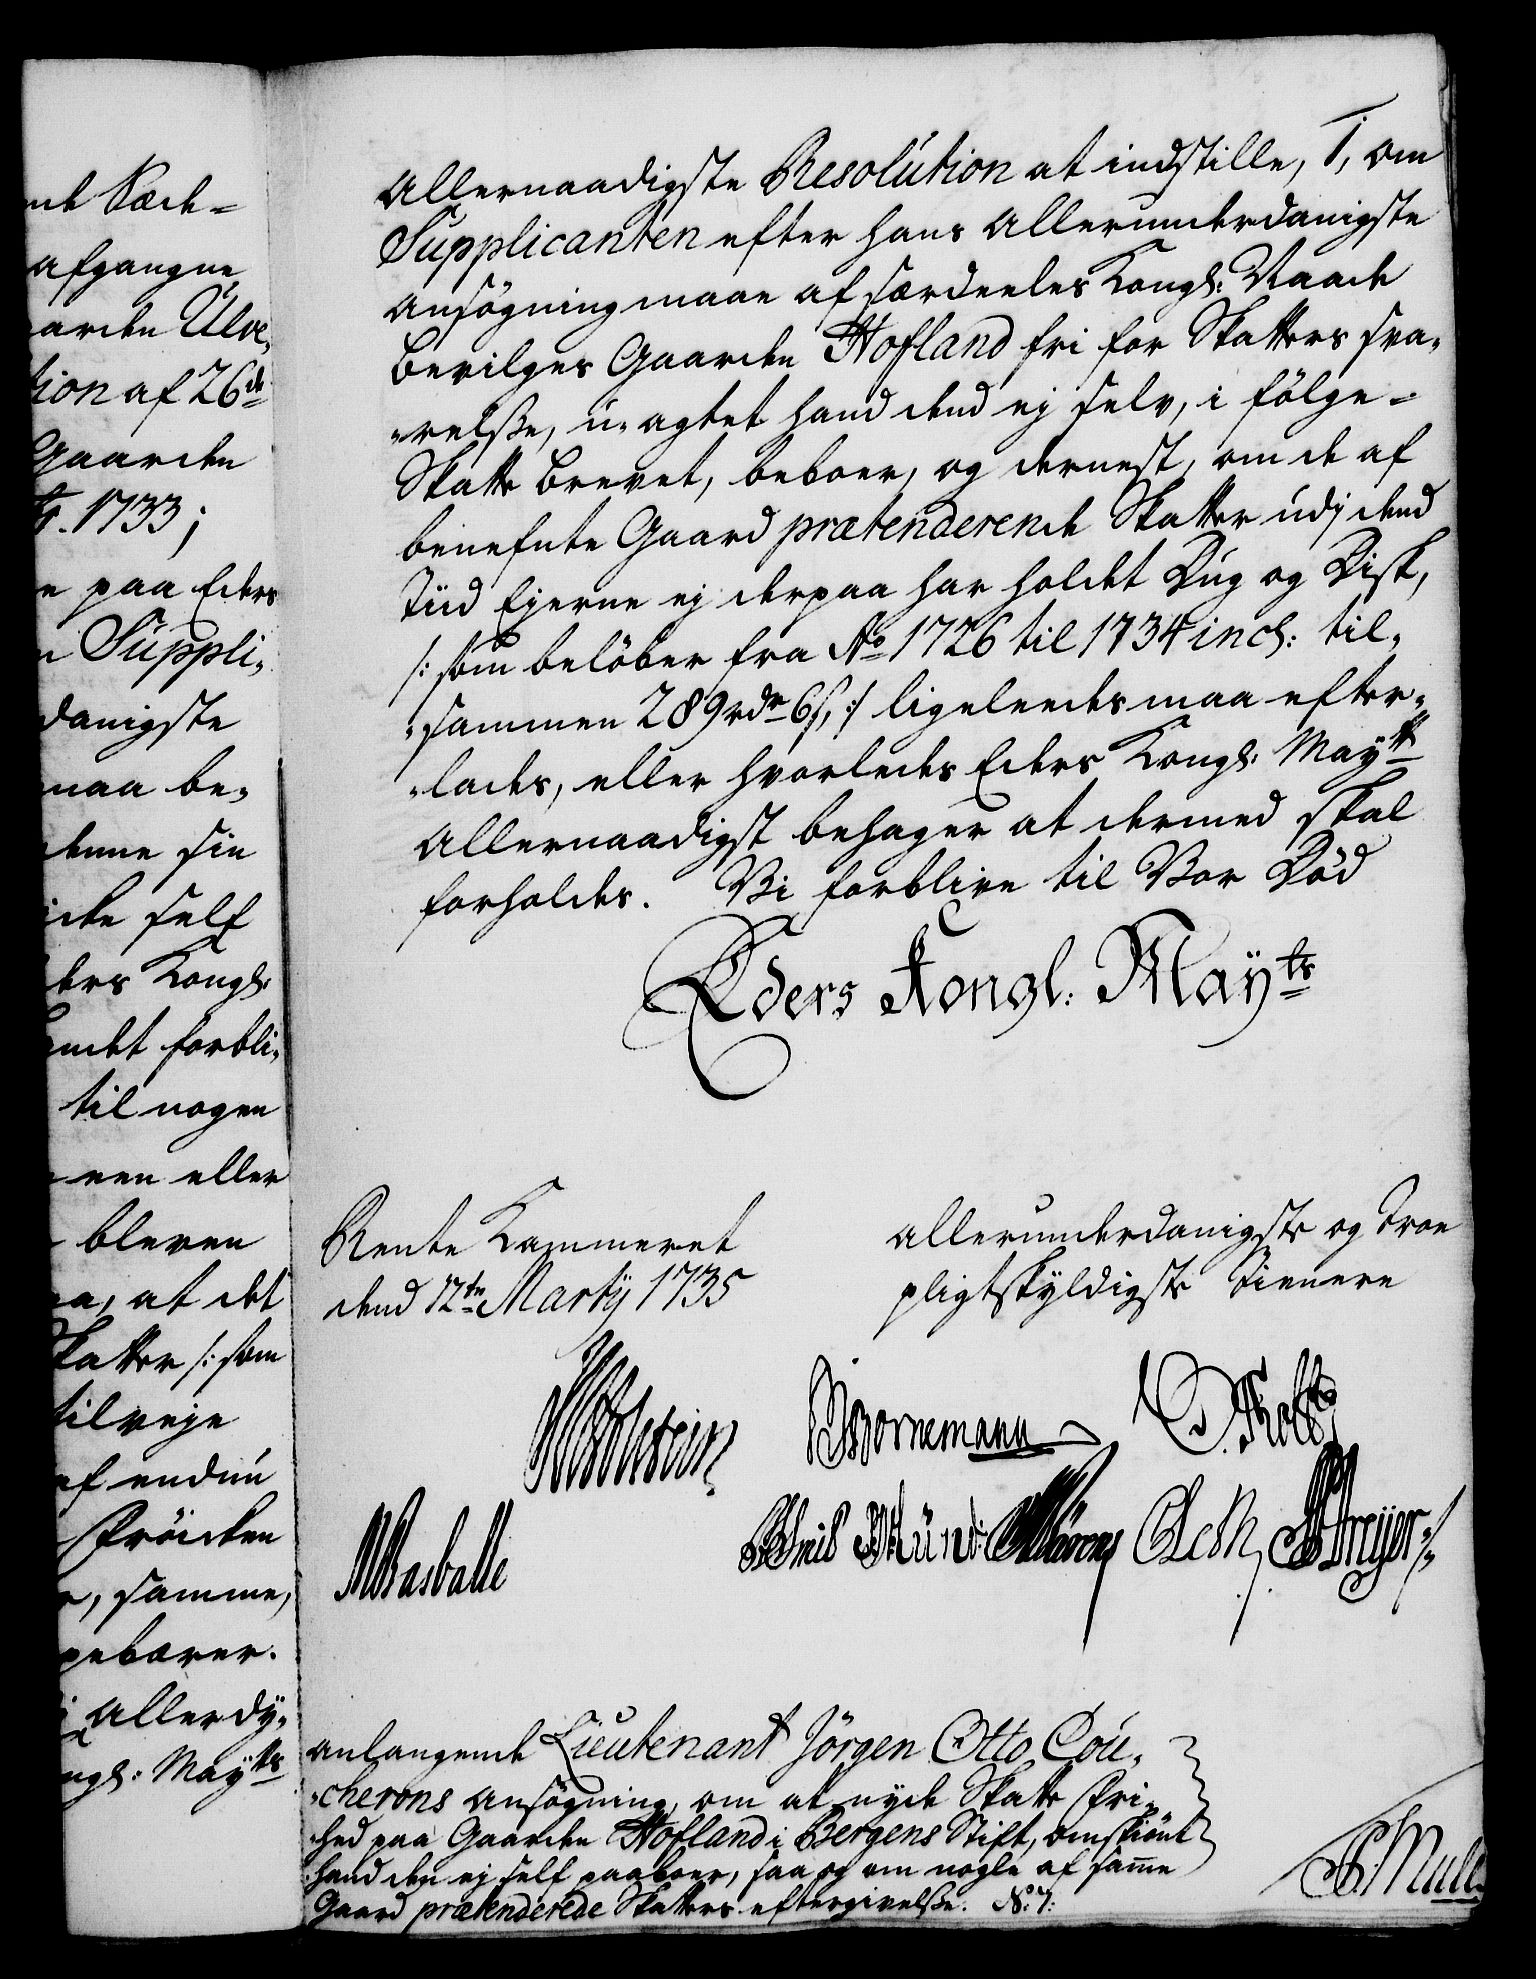 nde Sæde=
afgangne
aarden Ulve,
tion af 26de
Gaarden
1733;
paa Eders
Suppli,
danigste
maa be,
denne sin
icke self
ders Kongl:
andet forbli,
til nogen
een eller
bleven
at det
Skatter /: som
tilveje
af endnu
Fröicken
samme,
gebærer.
Allerdy,
ngl: Maytts
Allernaadigste Resolution at indstille, 1, om
Supplicanten efter hans Allerunderdanigste
Ansögning maae af særdeeles Kongl: Naade
bevilges Gaarden Hofland fri for Skatters sva,
,relße, u,agtet hand dend ej selv, i fölge=
Skatte brevet, beboer, og dernest, om de af
benefnte Gaard prætenderende Skatter udj dend
Tiid Ejerne ej derpaa har holdet Dug og Disk,
/: som belöber fra Ao 1726 til 1734 incl: til,
,sammen 289 rdr 6 s, :/ ligeleedes maa efter,
,lades, eller hvorledes Eders Kongl: Maytt
Allernaadigst behager at dermed skal
forholdes. Vi forblive til Vor Död
Eders Kongl: Mayts
Rente Kammeret
dend 12te Martij 1735
allerunderdanigste og troe
pligtskyldigste Tienere
Bornemann
Basballe
anlangende Lieutenant Jörgen Otto Cou,
,cherons ansögning, om at nyde Skatte Fri,
,hed paa Gaarden Hofland i Bergens Stift, omskiönt
hand den ej self paaboer, saa og om nogle af samme
Gaard prætenderede Skatters eftergivelße. No: 7: